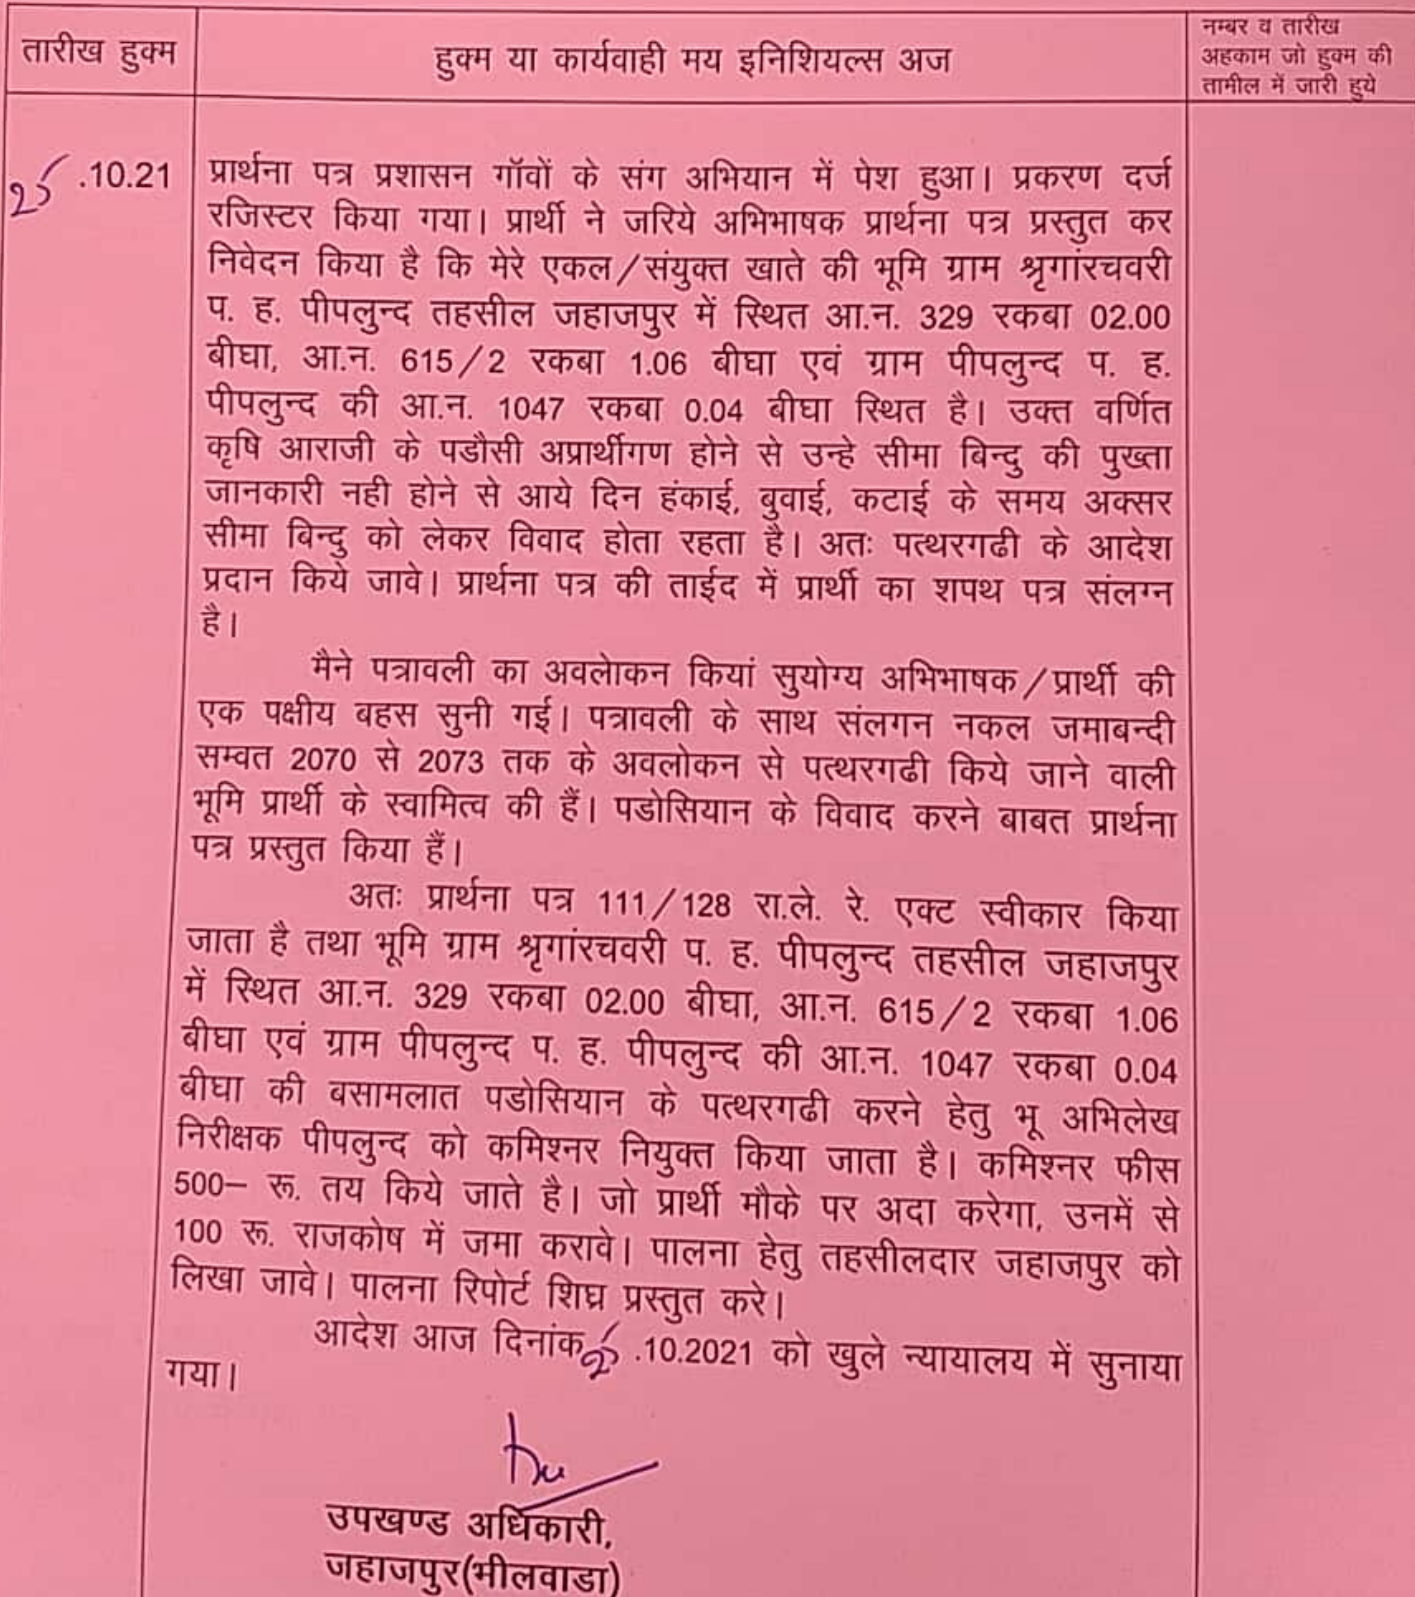 तारीख हुक्म
हुक्म या कार्यवाही मय इनिशियल्स अज
नम्बर व तारीख
अहकाम जो हुक्म की
तामील में जारी हुये
25 .10.21
प्रार्थना पत्र प्रशासन गॉवों के संग अभियान में पेश हुआ। प्रकरण दर्ज
रजिस्टर किया गया। प्रार्थी ने जरिये अभिभाषक प्रार्थना पत्र प्रस्तुत कर
निवेदन किया है कि मेरे एकल/संयुक्त खाते की भूमि ग्राम श्रृगांरचवरी
प. ह. पीपलुन्द तहसील जहाजपुर में स्थित आ.न. 329 रकबा 02.00
बीघा, आ.न. 615/2 रकबा 1.06 बीघा एवं ग्राम पीपलुन्द प. ह.
पीपलुन्द की आ.न. 1047 रकबा 0.04 बीघा स्थित है। उक्त वर्णित
कृषि आराजी के पडौसी अप्रार्थीगण होने से उन्हे सीमा बिन्दु की पुख्ता
जानकारी नही होने से आये दिन हंकाई, बुवाई, कटाई के समय अक्सर
सीमा बिन्दु को लेकर विवाद होता रहता है। अतः पत्थरगढी के आदेश
प्रदान किये जावे। प्रार्थना पत्र की ताईद में प्रार्थी का शपथ पत्र संलग्न
है।
मैने पत्रावली का अवलेाकन कियां सुयोग्य अभिभाषक/प्रार्थी की
एक पक्षीय बहस सुनी गई। पत्रावली के साथ संलगन नकल जमाबन्दी
सम्वत 2070 से 2073 तक के अवलोकन से पत्थरगढी किये जाने वाली
भूमि प्रार्थी के स्वामित्व की हैं। पडोसियान के विवाद करने बाबत प्रार्थना
पत्र प्रस्तुत किया हैं।
अतः प्रार्थना पत्र 111/128 रा.ले. रे. एक्ट स्वीकार किया
जाता है तथा भूमि ग्राम श्रृगांरचवरी प. ह. पीपलुन्द तहसील जहाजपुर
में स्थित आ.न. 329 रकबा 02.00 बीघा, आ.न. 615/2 रकबा 1.06
बीघा एवं ग्राम पीपलुन्द प. ह. पीपलुन्द की आ.न. 1047 रकबा 0.04
बीघा की बसामलात पडोसियान के पत्थरगढी करने हेतु भू अभिलेख
निरीक्षक पीपलुन्द को कमिश्नर नियुक्त किया जाता है। कमिश्नर फीस
500– रू. तय किये जाते है। जो प्रार्थी मौके पर अदा करेगा, उनमें से
100 रू. राजकोष में जमा करावे। पालना हेतु तहसीलदार जहाजपुर को
लिखा जावे। पालना रिपोर्ट शिघ्र प्रस्तुत करे।
आदेश आज दिनांक 25 .10.2021 को खुले न्यायालय में सुनाया
गया।
उपखण्ड अधिकारी,
जहाजपुर(भीलवाडा)